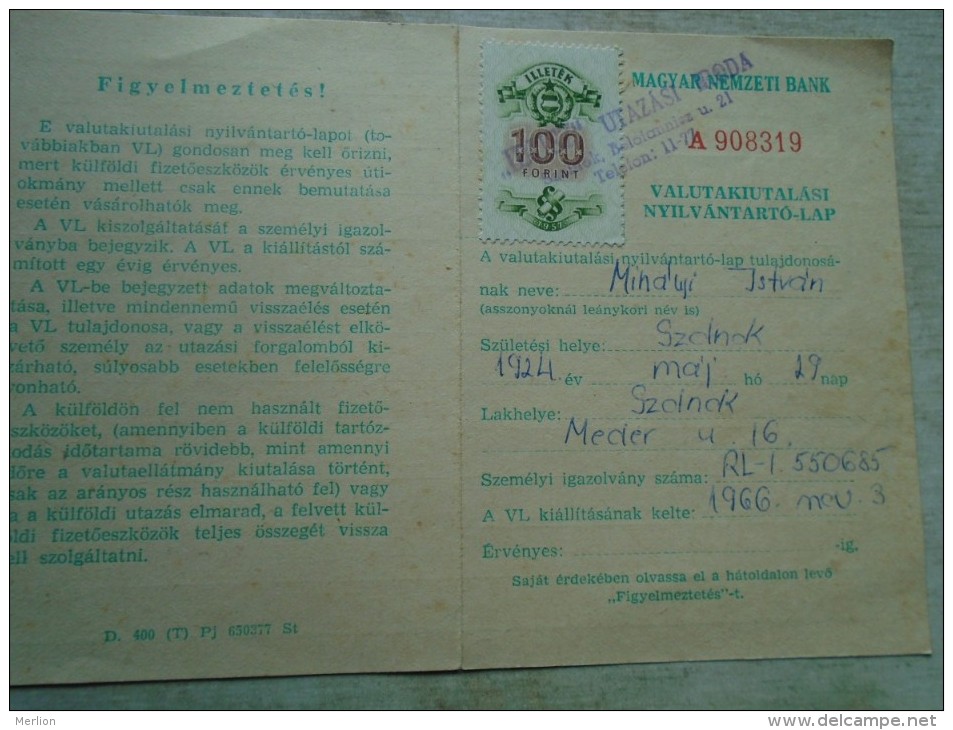 Figyelmeztetés!
E valutakiutalási nyilvántartó-lapot (to-
vábbiakban VL) gondosan meg kell őrizni,
mert külföldi fizetőeszközök érvényes úti-
okmány mellett csak ennek bemutatása
esetén vásárolhatók meg.
A VL kiszolgáltatását a személyi igazol-
ványba bejegyzik. A VL a kiállítástól szá-
mított egy évig érvényes.
A VL-be bejegyzett adatok megváltozta-
tása, illetve mindennemű visszaélés esetén
a VL tulajdonosa, vagy a visszaélést elkö-
vető személy az utazási forgalomból ki-
zárható, súlyosabb esetekben felelősségre
vonható.
A külföldön fel nem használt fizető-
eszközöket, (amennyiben a külföldi tartóz-
kodás időtartama rövidebb, mint amennyi
időre a valutaellátmány kiutalása történt,
csak az arányos rész használható fel) vagy
ha a külföldi utazás elmarad, a felvett kül-
földi fizetőeszközök teljes összegét vissza
kell szolgáltatni.
D. 400 (T) Pj 650377 St
ILLETÉK
100
FORINT
MAGYAR NEMZETI BANK
UTAZÁSI IRODA
u. 21
Telefon: 11-
A 908319
VALUTAKIUTALÁSI
NYILVÁNTARTÓ-LAP
A valutakiutalási nyilvántartó-lap tulajdonosá-
nak neve: Mihályi István
(asszonyoknál leánykori név is)
Születési helye: Szolnok
1924 év máj hó 29 nap
Lakhelye: Szolnok
Meder u. 16.
Személyi igazolvány száma: RL-I. 550685
A VL kiállításának kelte: 1966. nov. 3
Érvényes: -ig.
Saját érdekében olvassa el a hátoldalon levő
„Figyelmeztetés"-t.
Merlion
www.delcampe.net